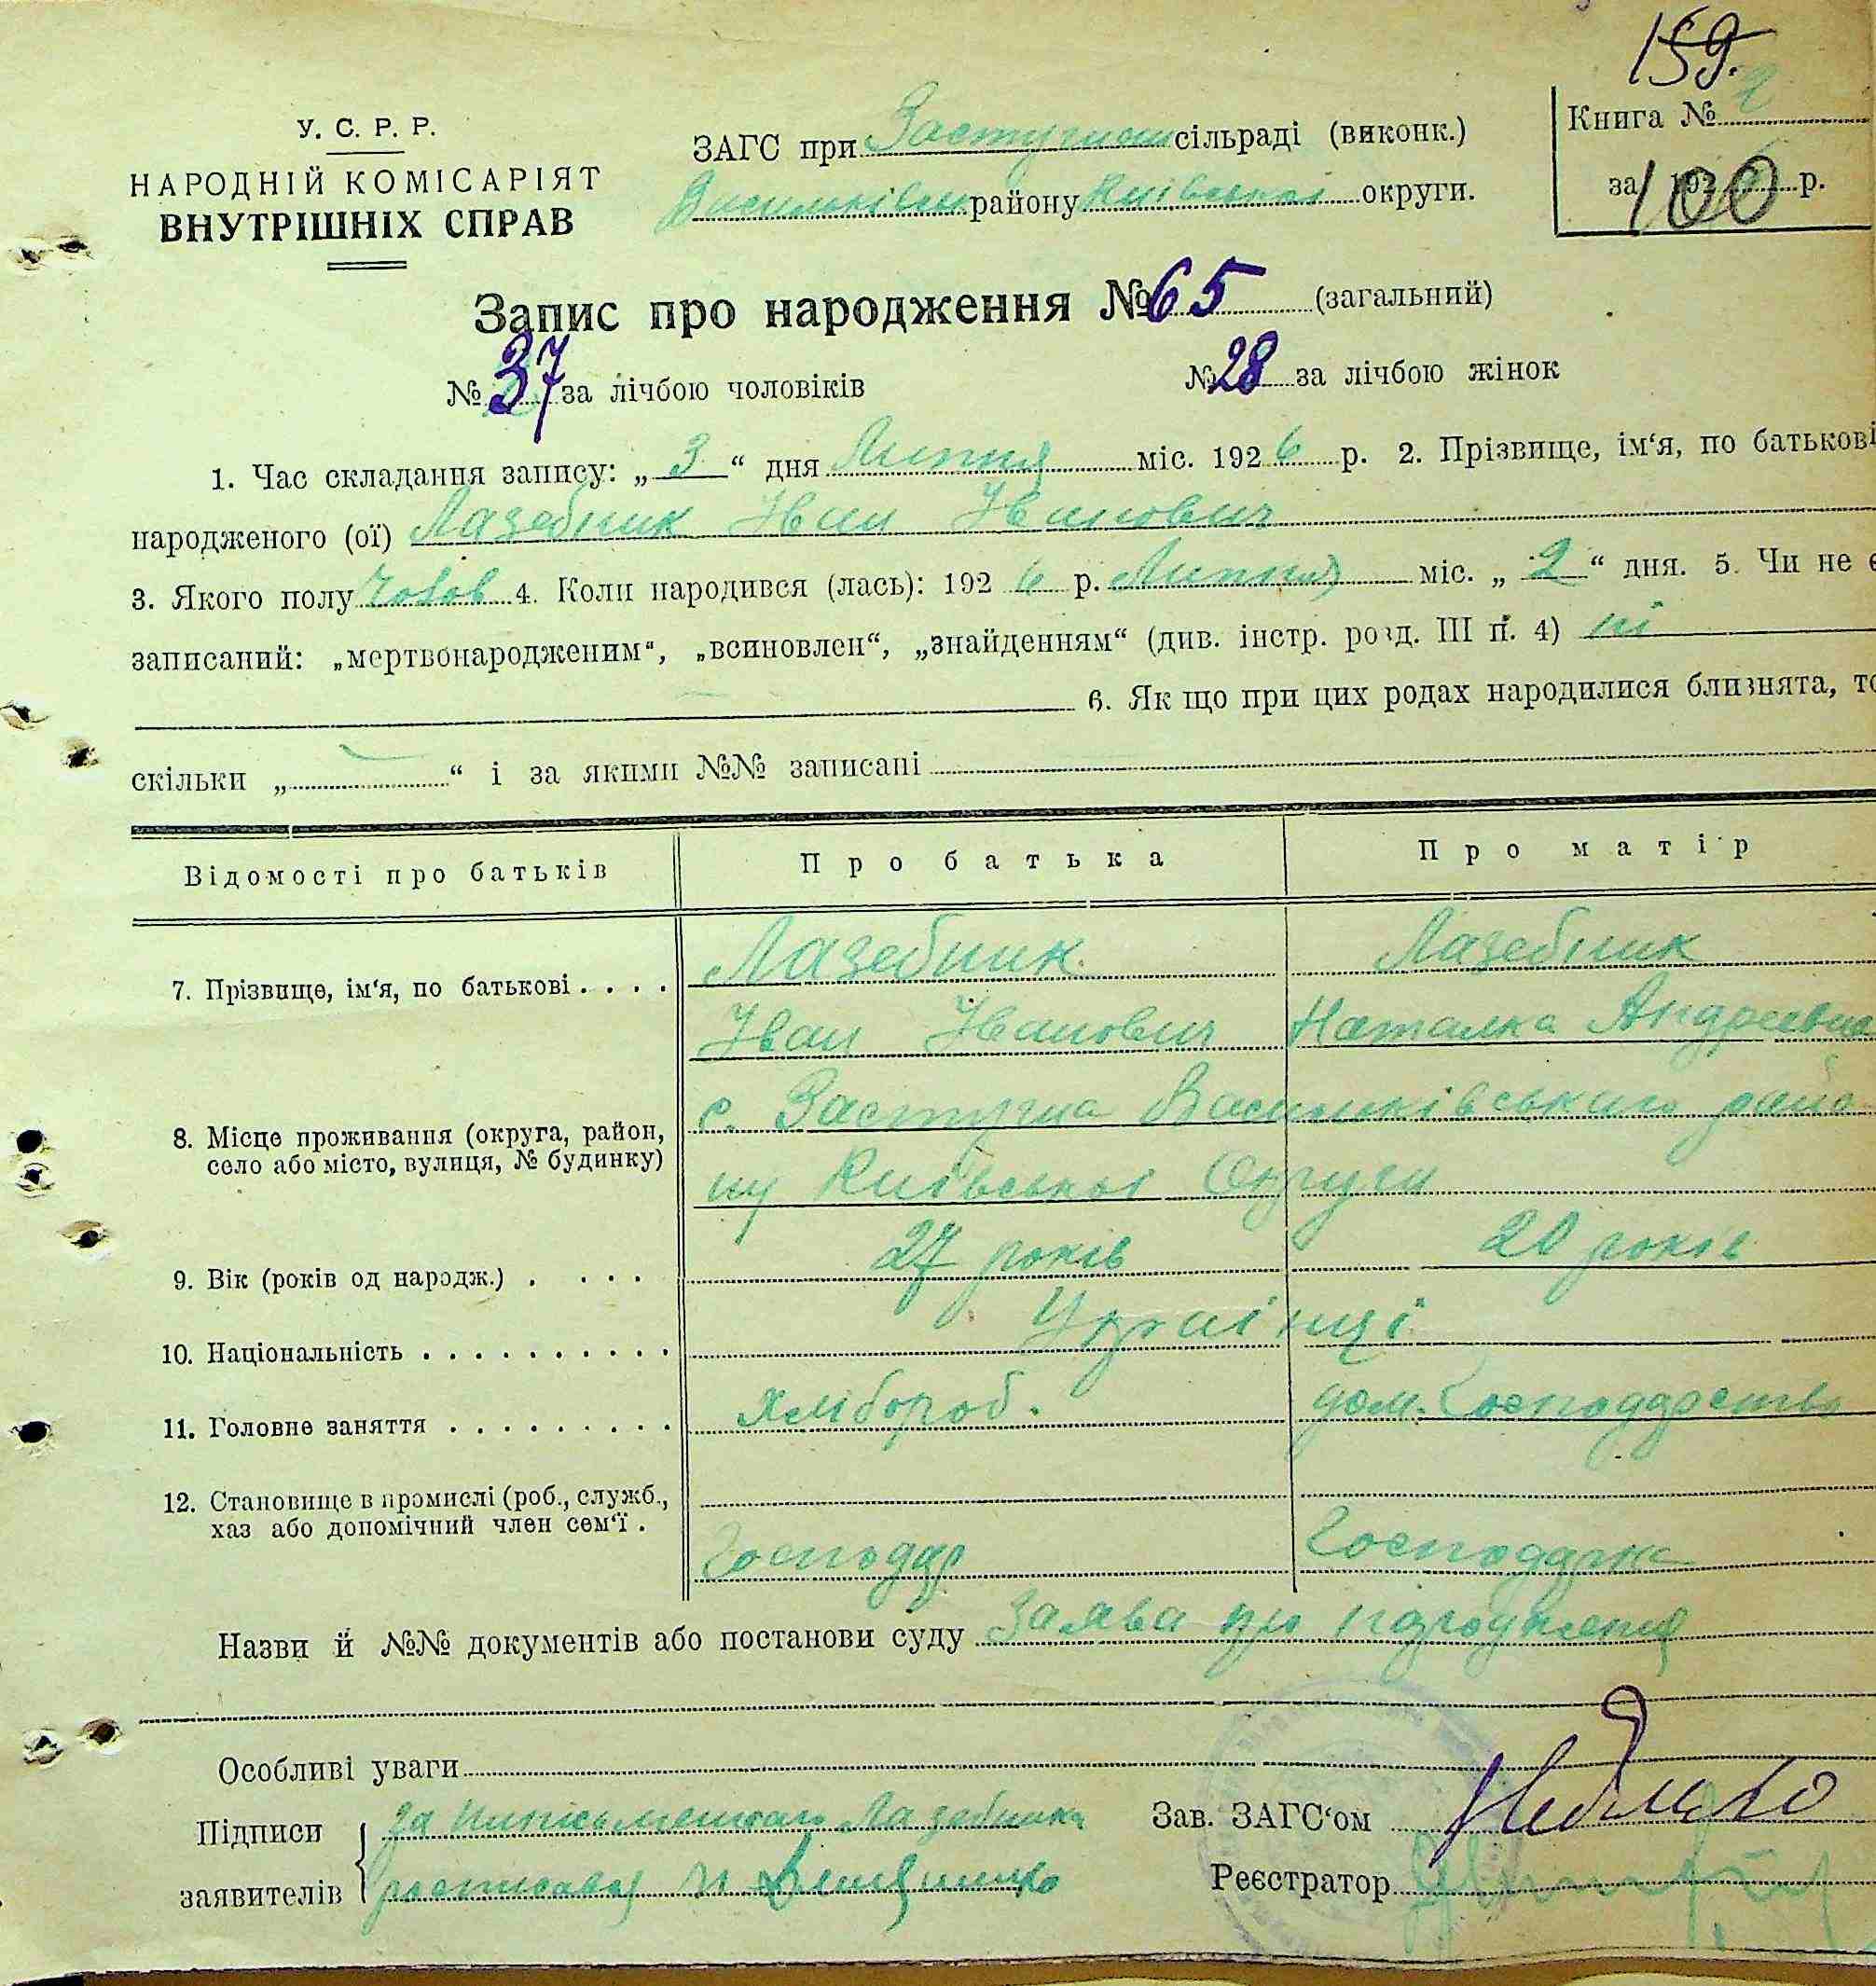 159.
У. С. Р. Р.
НАРОДНІЙ КОМІСАРІЯТ
ВНУТРІШНІХ СПРАВ
ЗАГС при Застугнян сільраді (виконк.)
Васильківськ району Київської округи.
Книга № 2
за 192 р.
100
Запис про народження № 65 (загальний)
№ 37 за лічбою чоловіків № 28 за лічбою жінок
1. Час складання запису: „ 3 “ дня Липня міс. 1926 р. 2. Прізвище, ім‘я, по батькові
народженого (ої) Лазебник Іван Іванович
3. Якого полу Чолов 4. Коли народився (лась): 192 6 р. Липня міс. „ 2 “ дня. 5. Чи не є
записаний: „мертвонародженим“, „всиновлен“, „знайденням“ (див. інстр. розд. III п. 4) ні
6. Як що при цих родах народилися близнята, то
скільки „ “ і за якими №№ записані
Відомості про батьків Про батька Про матір
7. Прізвище, ім‘я, по батькові . . . . Лазебник Лазебник
Іван Іванович Наталка Андреевна
8. Місце проживання (округа, район, село або місто, вулиця, № будинку) с. Застугна Васильківського райо
ну Київської Округи
9. Вік (років од народж.) . . . . . 27 років 20 років
10. Національність . . . . . . . . . . Українці
11. Головне заняття . . . . . . . . . Хлібороб. дом. Господарство
12. Становище в промислі (роб., служб.,
хаз або допомічний член сем‘ї .
Господар Господарка
Назви й №№ документів або постанови суду Заява про народження
Особливі уваги
Підписи за Лазебника Зав. ЗАГС‘ом
заявителів Реєстратор